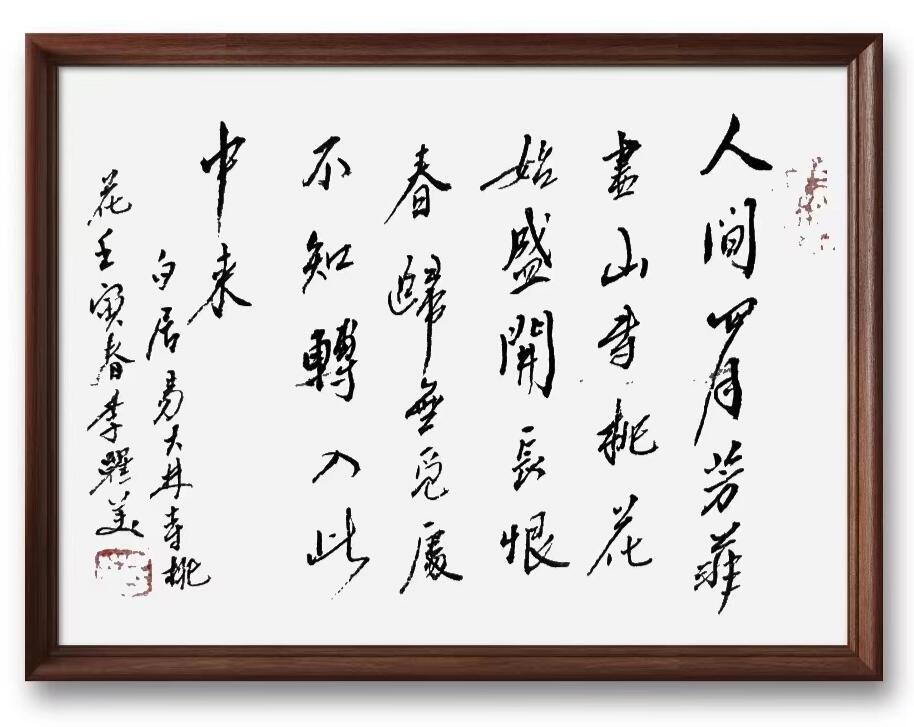 人間四月芳菲
盡山寺桃花
始盛開長恨
春歸無覓處
不知轉入此
中来
白居易大林寺桃
花壬寅春李美